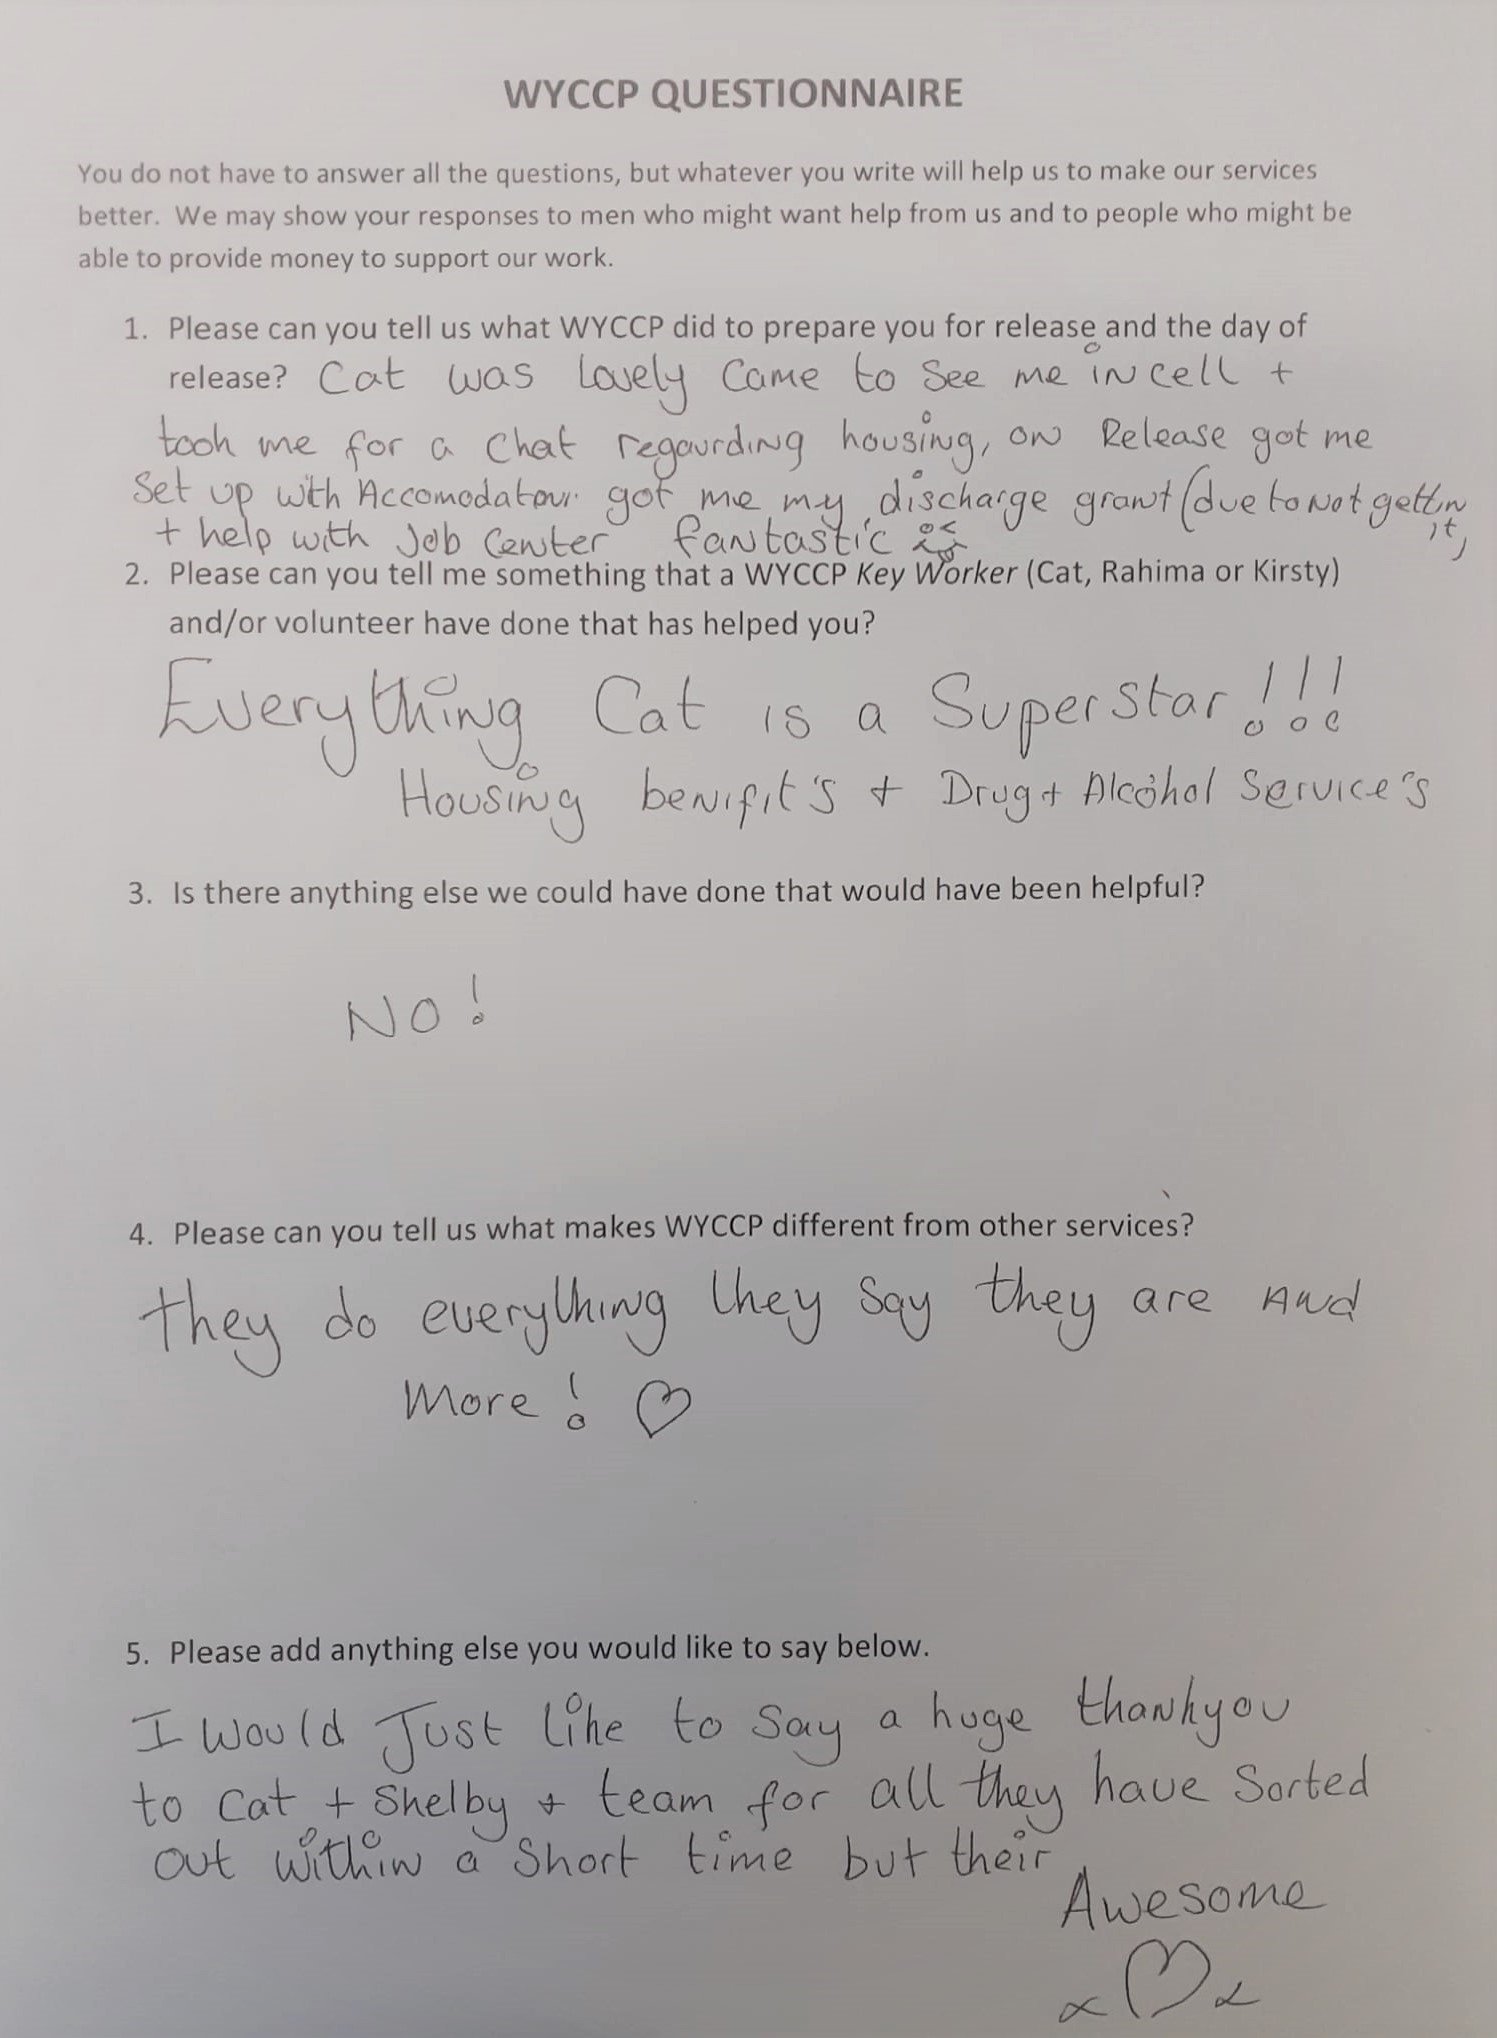 WYCCP QUESTIONNAIRE
You do not have to answer all the questions, but whatever you write will help us to make our services
better. We may show your responses to men who might want help from us and to people who might be
able to provide money to support our work.
1. Please can you tell us what WYCCP did to prepare you for release and the day of
release? Cat was lovely came to see me in cell +
took me for a chat regaurding housing, on Release got me
Set up with Accomodatour got me my discharge grant (due to not gettin
it)
+ help with Job Center fantastic
2. Please can you tell me something that a WYCCP Key Worker (Cat, Rahima or Kirsty)
and/or volunteer have done that has helped you?
Everything Cat is a Superstar!!!
Housing benifit's + Drug + Alcohol Service's
3. Is there anything else we could have done that would have been helpful?
NO!
4. Please can you tell us what makes WYCCP different from other services?
they do everything they say they are And
More! ♡
5. Please add anything else you would like to say below.
I would Just like to say a huge thankyou
to Cat + Shelby + team for all they have Sorted
out within a short time but their
Awesome
x ♡ x